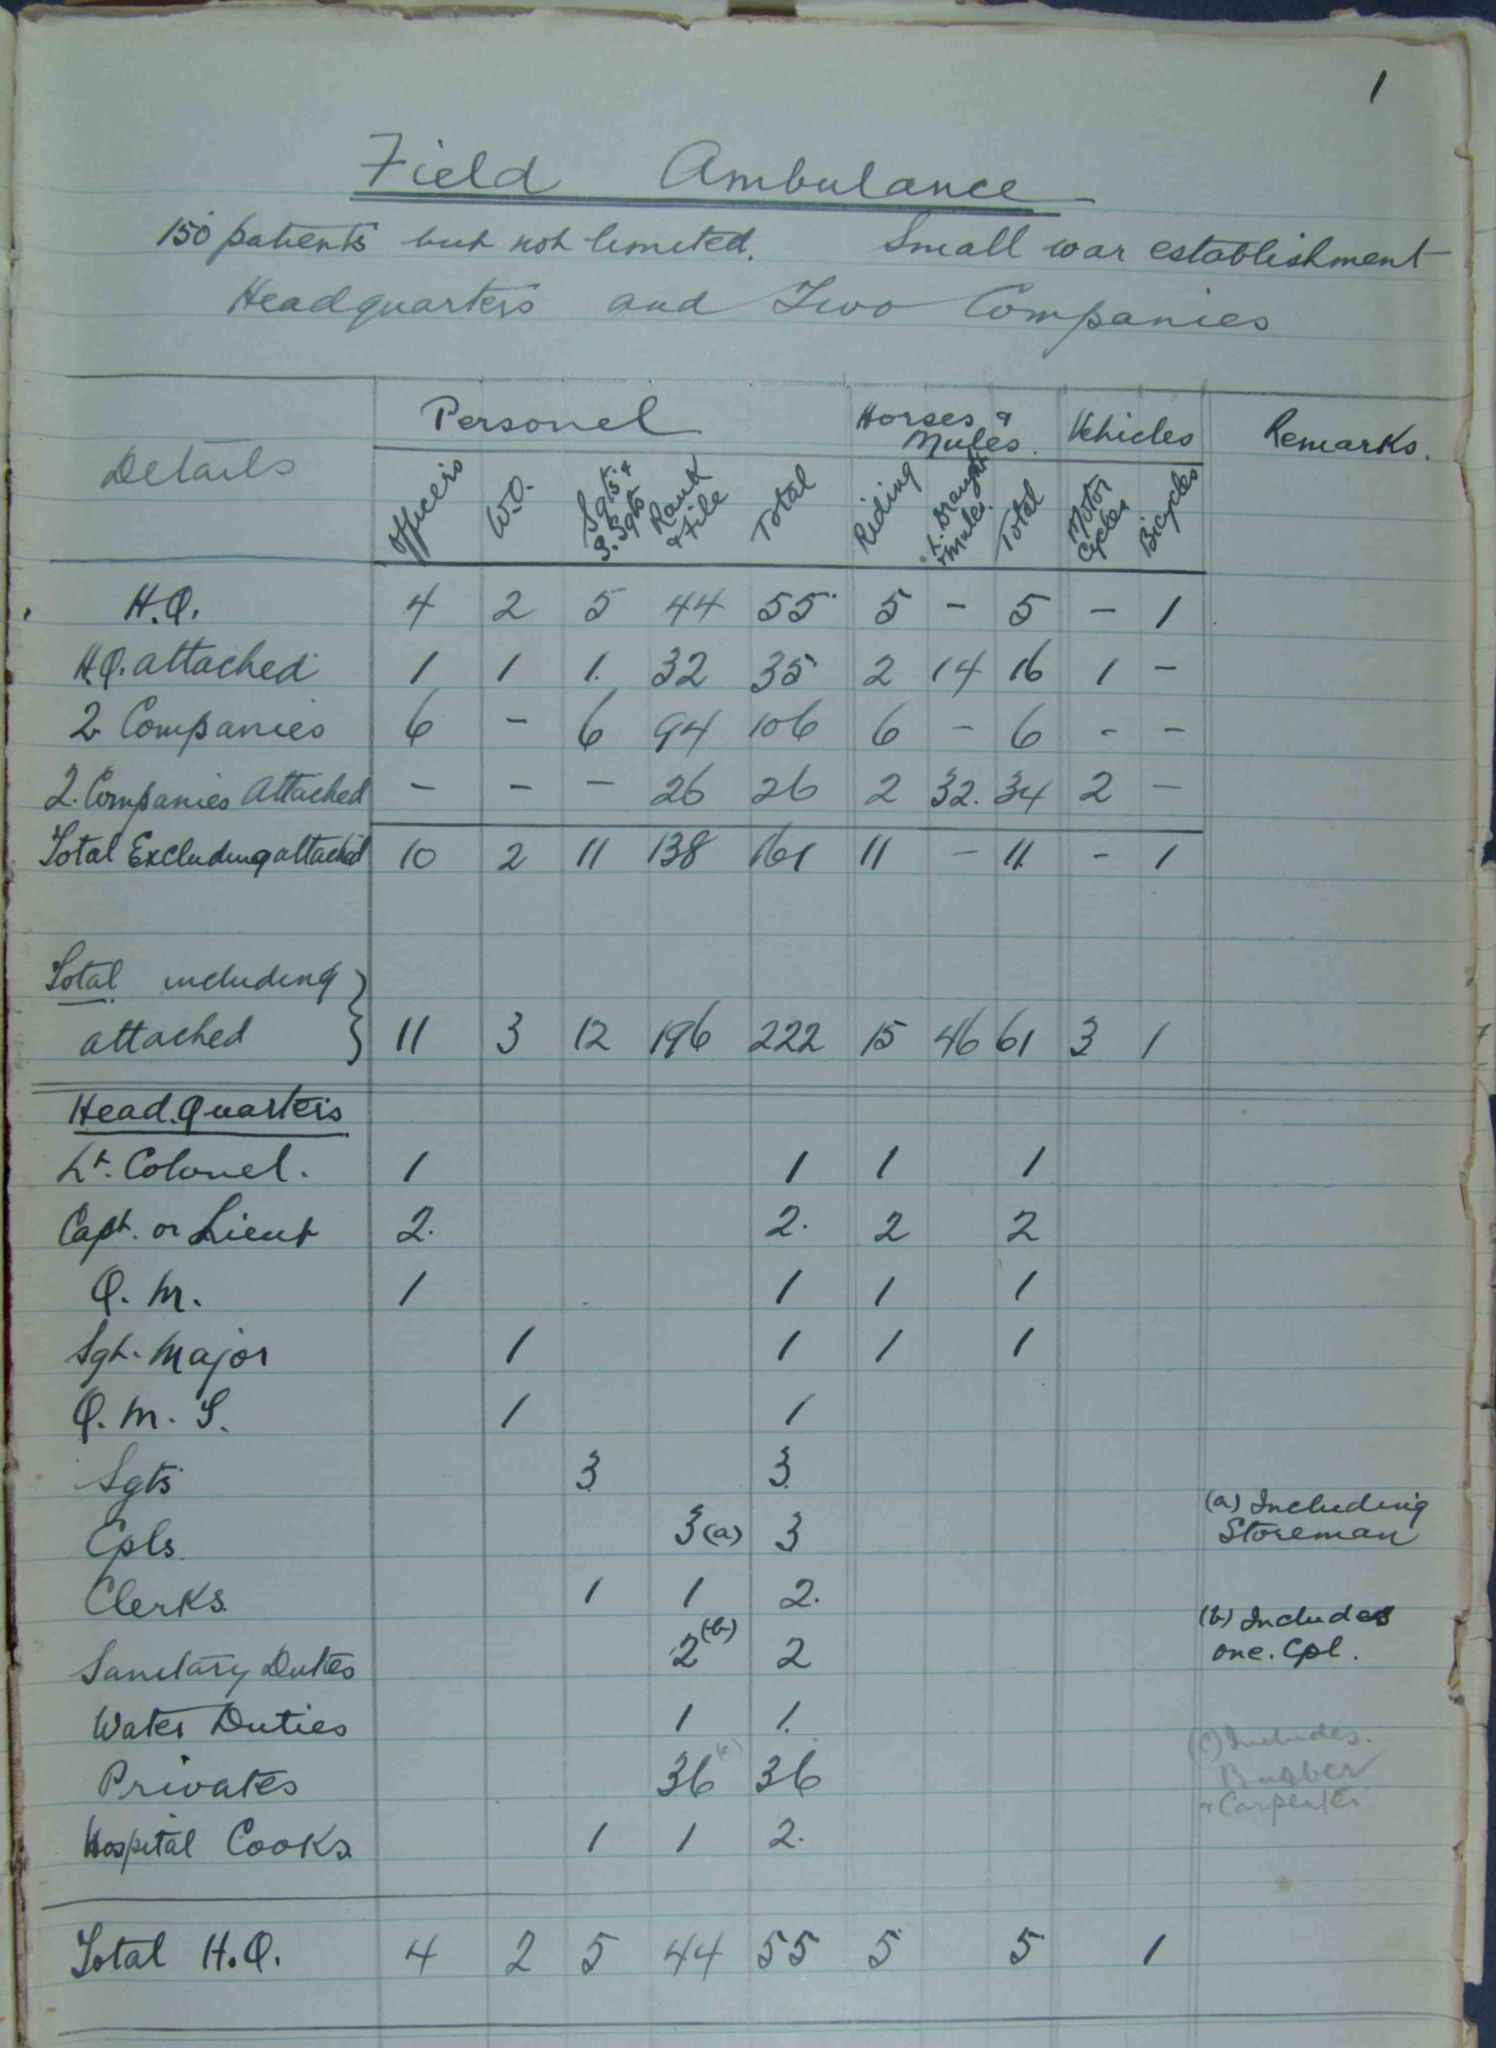 1
Field Ambulance
150 patients but not limited. Small war establishment
Headquarters and Two Companies
Details Personel Horses & Mules. Vehicles Remarks.
Officers W.O. Sgts & S. Sgts Rank & File Total Riding L. Draught & Mules Total Motor Cycles Bicycles
H.Q. 4 2 5 44 55 5 - 5 - 1
H.Q. attached 1 1 1 32 35 2 14 16 1 -
2 Companies 6 - 6 94 106 6 - 6 - -
2. Companies Attached - - - 26 26 2 32. 34 2 -
Total Excluding attached 10 2 11 138 161 11 - 11. - 1
Total including
attached } 11 3 12 196 222 15 46 61 3 1
Head.Quarters
Lt. Colonel. 1 1 1 1
Capt. or Lieut 2. 2. 2 2
Q. M. 1 1 1 1
Sgt. Major 1 1 1 1
Q. M. S. 1 1
Sgts 3 3
Cpls. 3(a) 3 (a) Including Storeman
Clerks. 1 1 2.
Sanitary Duties 2(b) 2 (b) Includes one. Cpl.
Water Duties 1 1.
Privates 36(c) 36 (c) Includes. & Carpenter
Hospital Cooks. 1 1 2.
Total H.Q. 4 2 5 44 55 5 5 1